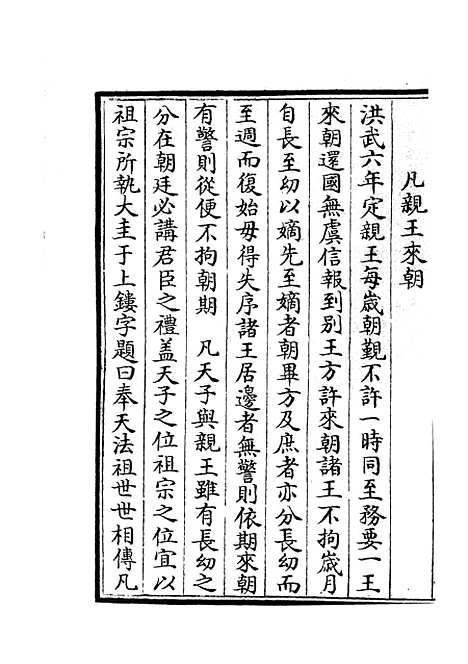 凡親王來朝
洪武六年定親王每歲朝覲不許一時同至務要一王
來朝還國無虞信報到别王方許來朝諸王不拘歲月
自長至幼以嫡先至嫡者朝畢方及庶者亦分長幼而
至週而復始毋得失序諸王居邊者無警則依期來朝
有警則從便不拘朝期　凡天子與親王雖有長幼之
分在朝廷必講君臣之禮盖天子之位祖宗之位宜以
祖宗所執大圭于上鏤字題曰奉天法祖世世相傳凡